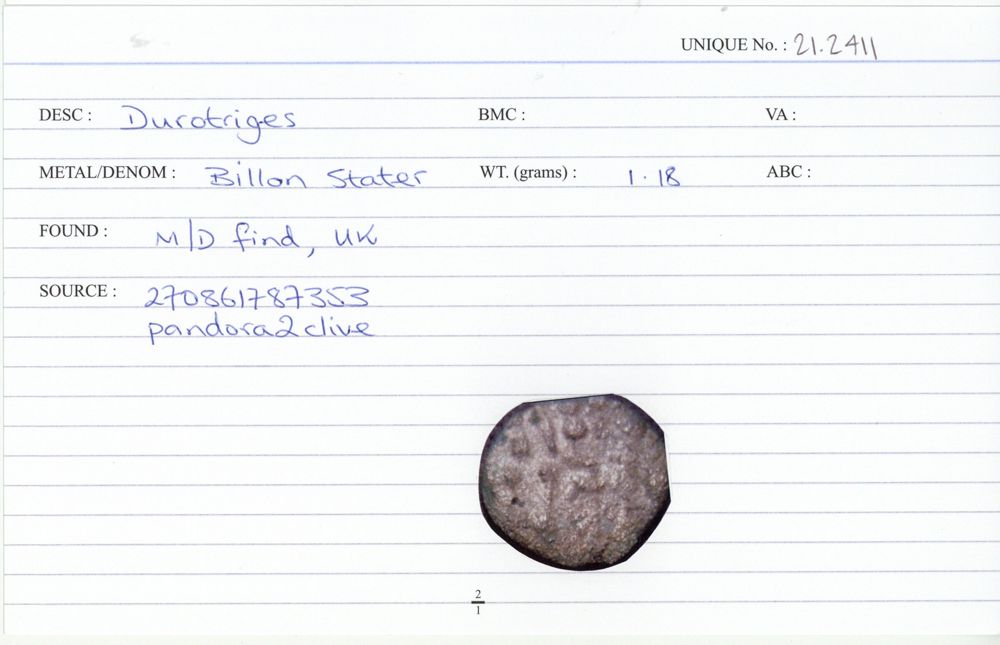 UNIQUE No. : 21.2411
DESC : Durotriges BMC : VA :
METAL/DENOM : Billon Stater WT. (grams) : 1.18 ABC :
FOUND : M/D find, UK
SOURCE : 270861787353
pandora2clive
2
1